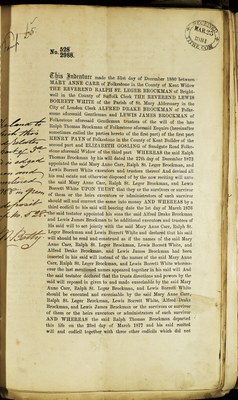 No. 528
2988.
This Indenture made the 21st day of December 1880 between
MARY ANNE CARR of Folkestone in the County of Kent Widow
THE REVEREND RALPH ST. LEGER BROCKMAN of
well in the County of Suffolk Clerk THE REVEREND LEWIS
BORRETT WHITE of the Parish of St. Mary Aldermary in the
City of London Clerk ALFRED DRAKE BROCKMAN of Folkestone
aforesaid Gentleman and LEWIS JAMES BROCKMAN of
Folkestone aforesaid Gentleman trustees of the will of the late
Ralph Thomas Brockman of Folkestone aforesaid Esquire (hereinafter
sometimes called the parties hereto of the first part) of the first part
HENRY PAYN of Folkestone in the County of Kent Builder of the
second part and ELIZABETH GOSLING of Sandgate Road Folke-
stone aforesaid Widow of the third part WHEREAS the said Ralph
Thomas Brockman by his will dated the 27th day of December 1872
appointed the said Mary Anne Carr, Ralph St. Leger Brockman, and
Lewis Borrett White executors and trustees thereof And devised all
his real estate not otherwise disposed of by the now reciting will unto
the said Mary Anne Carr, Ralph St. Leger Brockman, and Lewis
Borrett White UPON TRUST that they or the survivors or survivor
of them or the heirs executors or administrators of such survivor
should sell and convert the same into money AND WHEREAS by a
third codicil to his said will bearing date the 1st day of March 1876
the said testator appointed his sons the said Alfred Drake Brockman
and Lewis James Brockman to be additional executors and trustees of
his said will to act jointly with the said Mary Anne Carr, Ralph St.
Leger Brockman, and Lewis Borrett White and declared that his said
will should be read and construed as if the names of the said Mary
Anne Carr, Ralph St. Leger Brockman, Lewis Borrett White, and
Alfred Drake Brockman, and Lewis James Brockman had been
inserted in his said will instead of the names of the said Mary Anne
Carr, Ralph St. Leger Brockman, and Lewis Borrett White wherever
the last mentioned names appeared together in his said will And
the said testator declared that the trusts directions and powers by the
said will reposed in given to and made exercisable by the said Mary
Anne Carr, Ralph St. Leger Brockman, and Lewis Borrett White
should be executed and exercisable by the said Mary Anne Carr,
Ralph St. Leger Brockman, Lewis Borrett White, Alfred Drake
Brockman, and Lewis James Brockman or the survivors or survivor
of them or the heirs executors or administrators of such survivor
AND WHEREAS the said Ralph Thomas Brockman departed
this life on the 23rd day of March 1877 and his said recited
will and codicil together with three other codicils which did not